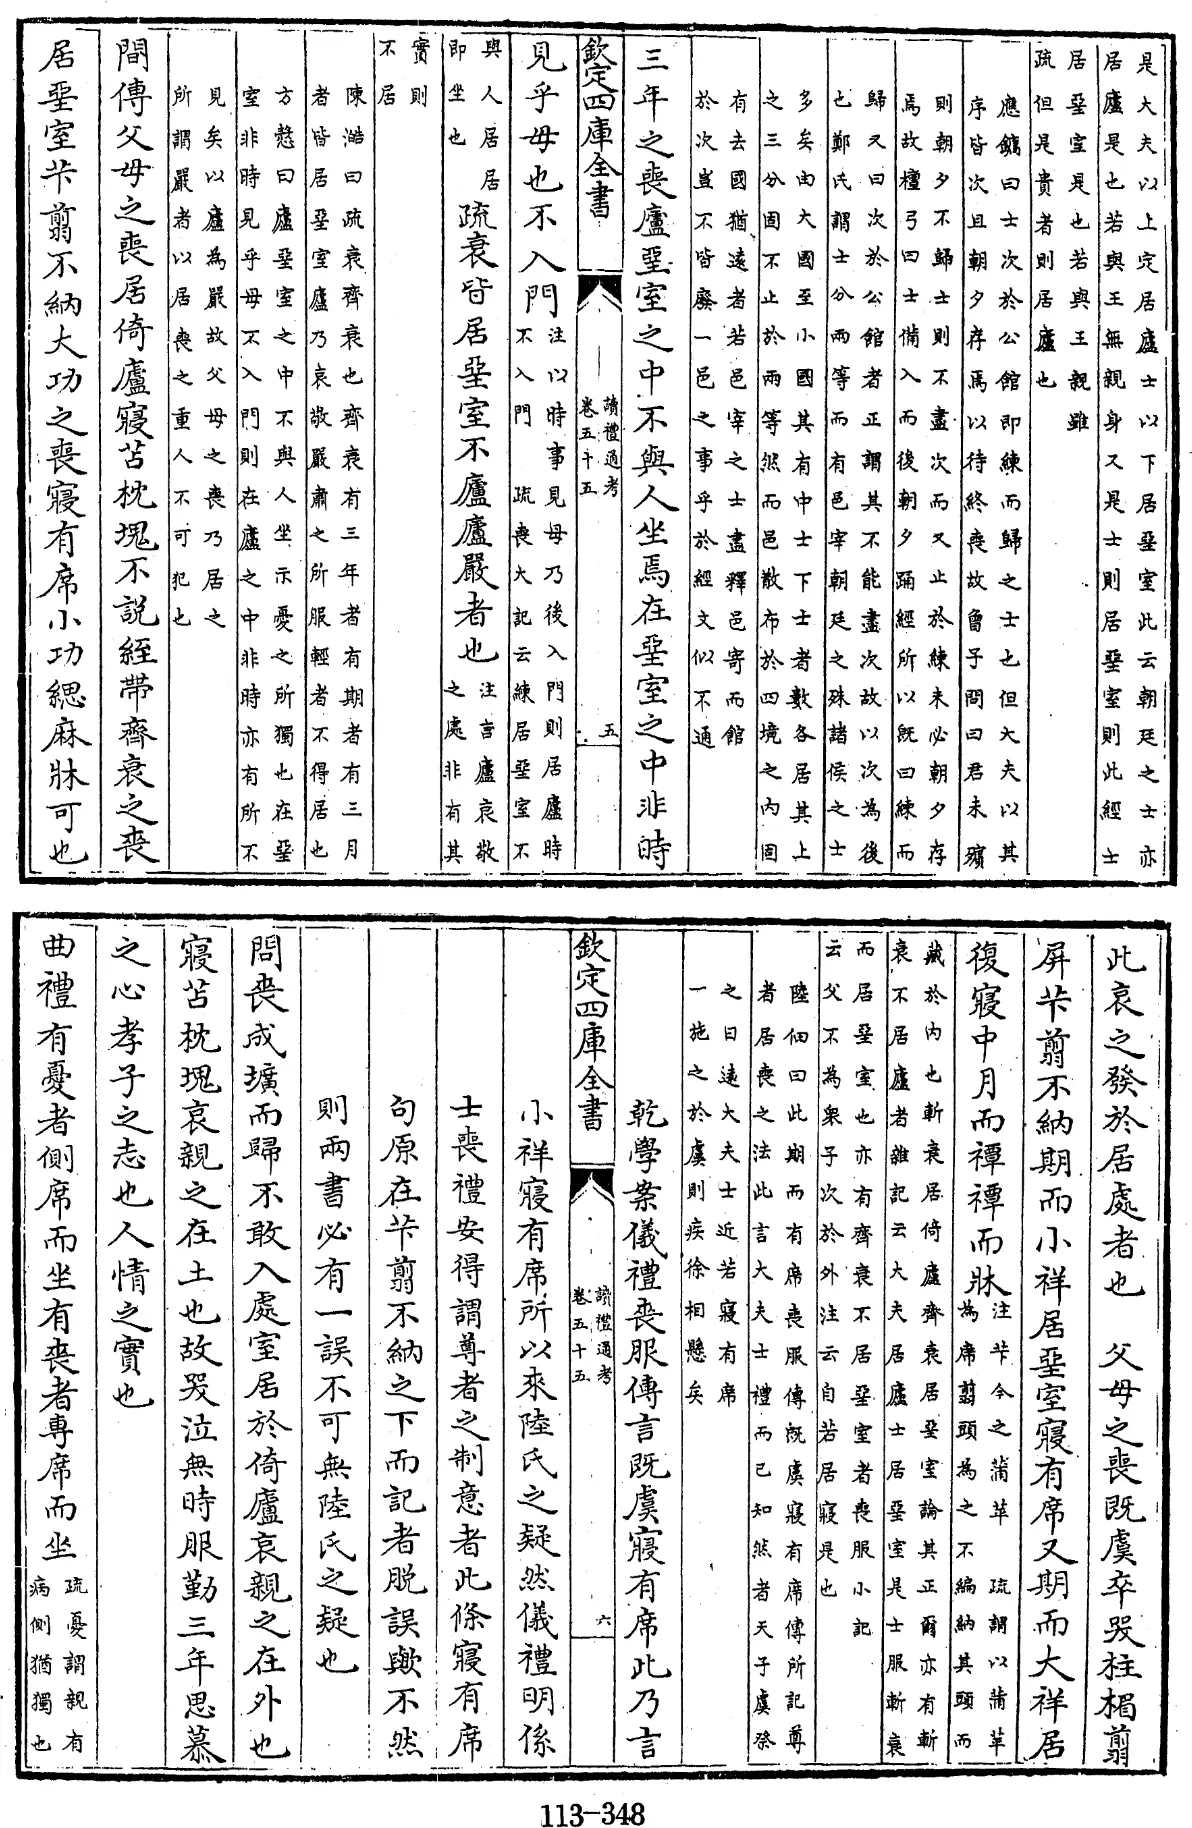 是大夫以上定居廬士以下居堊室此云朝廷之士亦
居廬是也若與王無親身又是士則居堊室則此經士
居堊室是也若與王親雖
疏但是貴者則居廬也
應鏞曰士次於公館即練而歸之士也但大夫以其
序皆次且朝夕存焉以待終喪故曾子問曰君未殯
則朝夕不歸士則不盡次而又止於練未必朝夕存
焉故檀弓曰士備入而後朝夕踊經所以既曰練而
歸又曰次於公館者正謂其不能盡次故以次為後
也鄭氏謂士分兩等而有邑宰朝廷之殊諸侯之士
多矣由大國至小國其有中士下士者數各居其上
之三分固不止於兩等然而邑散布於四境之內固
有去國猶遠者若邑宰之士盡釋邑寄而館
於次豈不皆廢一邑之事乎於經文似不通
三年之喪廬堊室之中不與人坐焉在堊室之中非時
欽定四庫全書
讀禮通考
卷五十五
五
見乎母也不入門
注以時事見母乃後入門則居廬時
不入門 疏喪大記云練居堊室不
與人居居
即坐也
疏衰皆居堊室不廬廬嚴者也
注言廬哀敬
之處非有其
實則
不居
陳澔曰疏衰齊衰也齊衰有三年者有期者有三月
者皆居堊室廬乃哀敬嚴肅之所服輕者不得居也
方慤曰廬堊室之中不與人坐示憂之所獨也在堊
室非時見乎母不入門則在廬之中非時亦有所不
見矣以廬為嚴故父母之喪乃居之
所謂嚴者以居喪之重人不可犯也
間傳父母之喪居倚廬寢苫枕塊不説絰帶齊衰之喪
居堊室芐翦不納大功之喪寢有席小功緦麻牀可也
此哀之發於居處者也 父母之喪既虞卒哭柱楣翦
屏芐翦不納期而小祥居堊室寢有席又期而大祥居
復寢中月而禫禫而牀
注芐今之蒲苹 疏謂以蒲苹
為席翦頭為之不編納其頭而
藏於內也斬衰居倚廬齊衰居堊室論其正爾亦有斬
衰不居廬者雜記云大夫居廬士居堊室是士服斬衰
而居堊室也亦有齊衰不居堊室者喪服小記
云父不為衆子次於外注云自若居寢是也
陸佃曰此期而有席喪服傳既虞寢有席傳所記尊
者居喪之法此言大夫士禮而已知然者天子虞祭
之日遠大夫士近若寢有席
一施之於虞則疾徐相懸矣
乾學案儀禮喪服傳言既虞寢有席此乃言
欽定四庫全書
讀禮通考
卷五十五
六
小祥寢有席所以來陸氏之疑然儀禮明係
士喪禮安得謂尊者之制意者此條寢有席
句原在芐翦不納之下而記者脱誤歟不然
則兩書必有一誤不可無陸氏之疑也
問喪成壙而歸不敢入處室居於倚廬哀親之在外也
寢苫枕塊哀親之在土也故哭泣無時服勤三年思慕
之心孝子之志也人情之實也
曲禮有憂者側席而坐有喪者專席而坐
疏憂謂親有
病側猶獨也
113-348